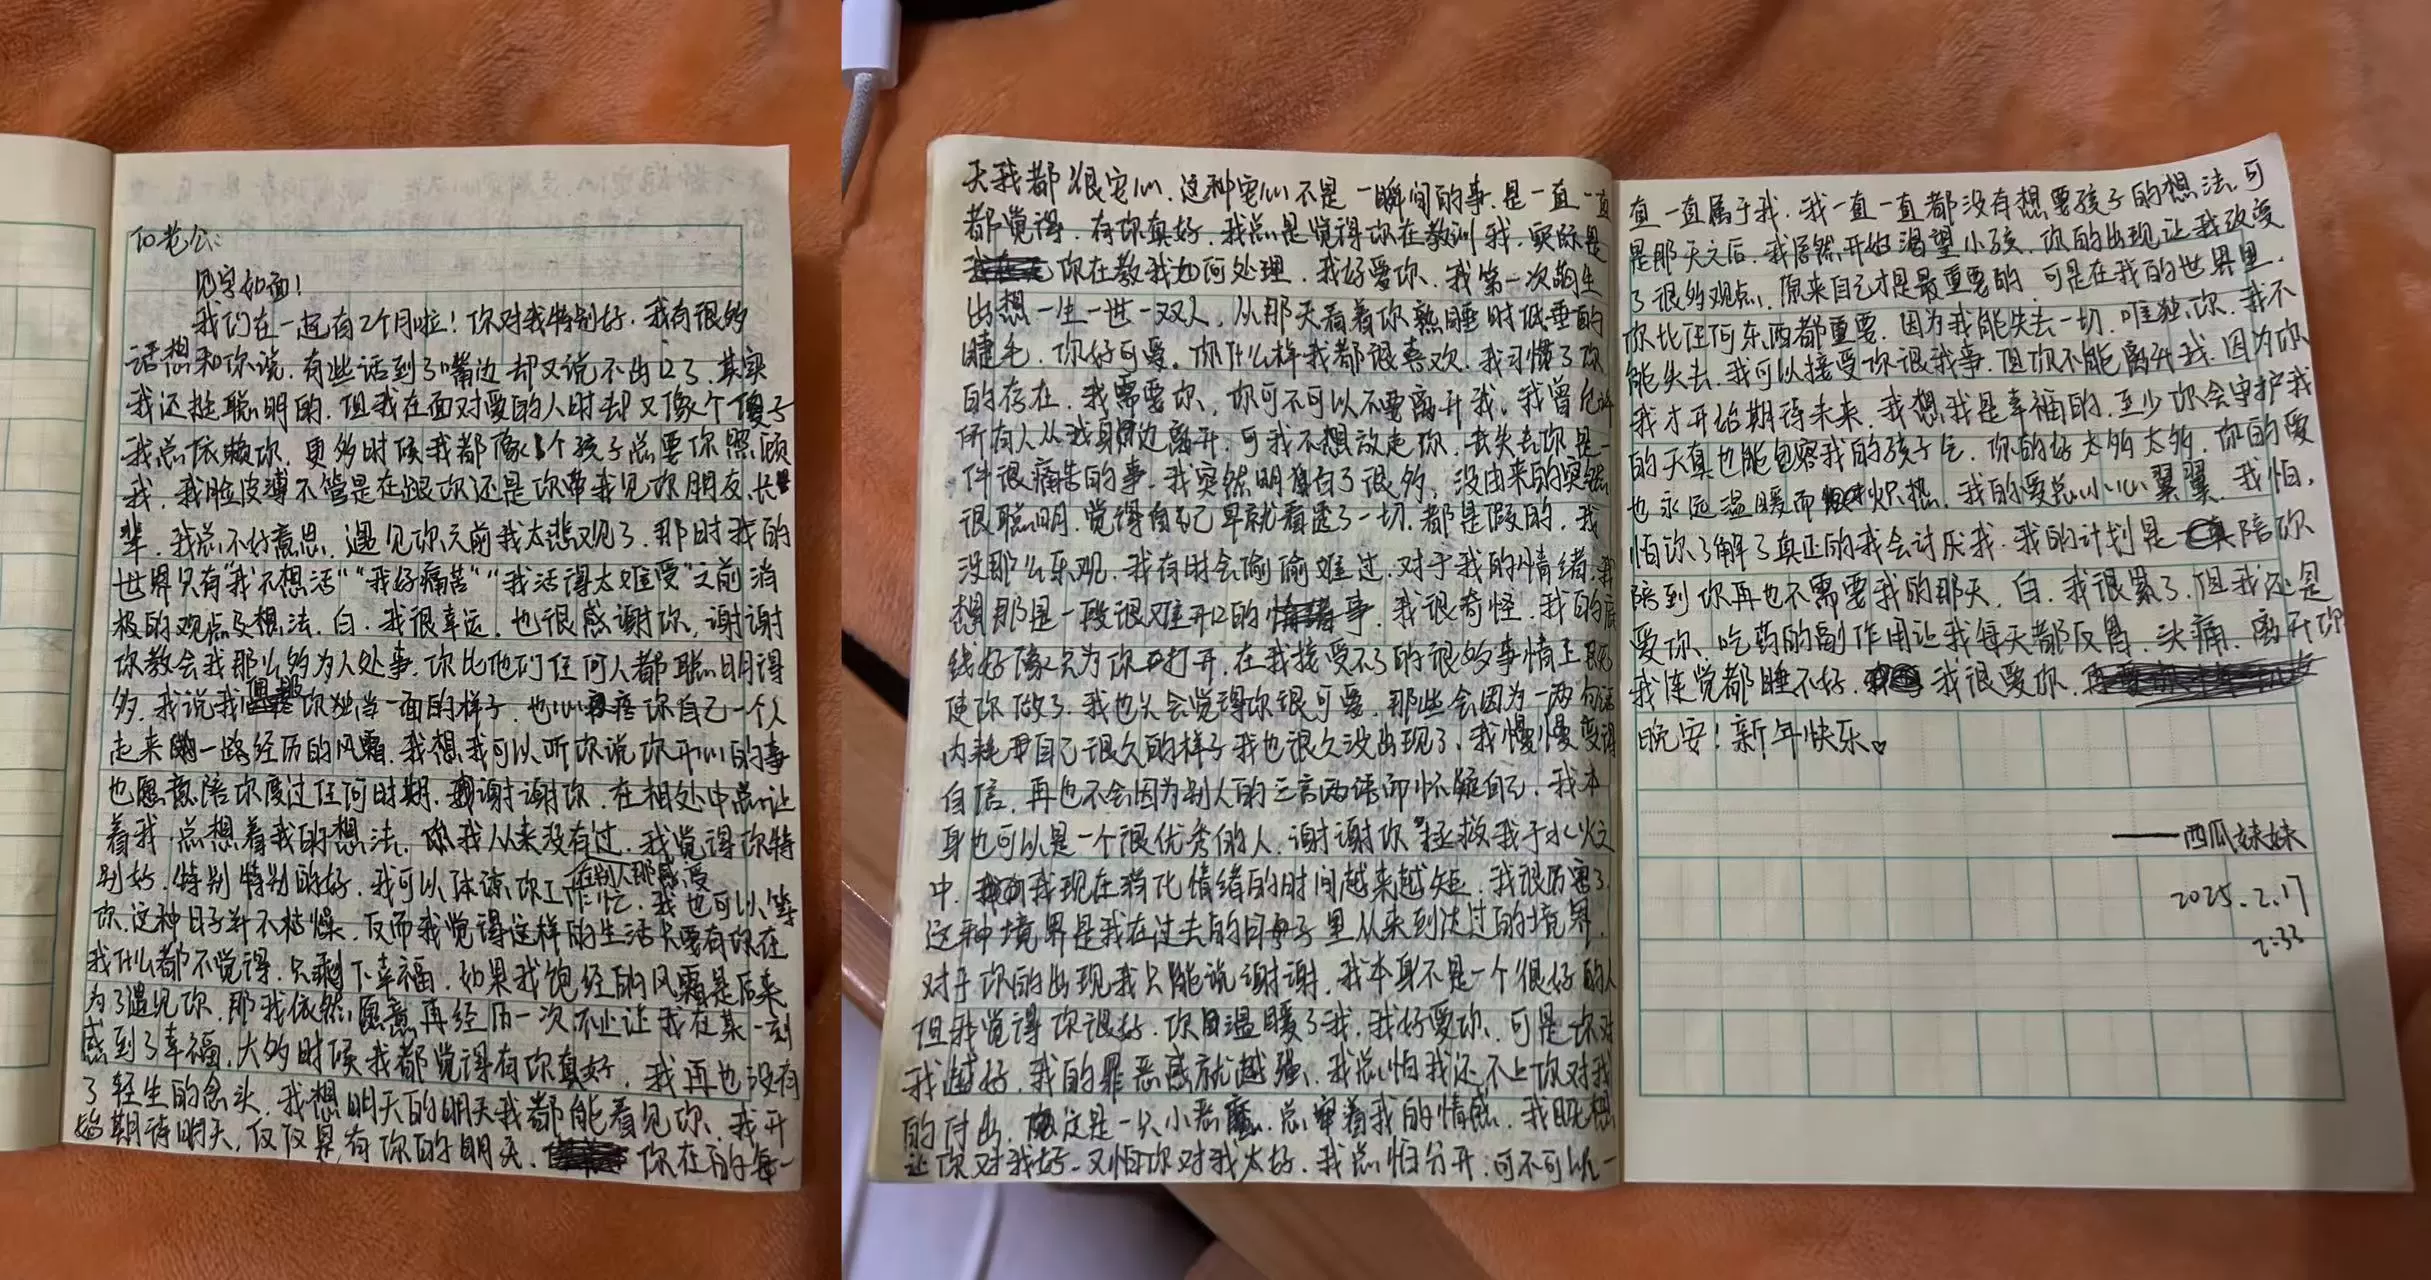 To老公：
见字如面！
我们在一起有2个月啦！你对我特别好．我有很多
话想和你说．有些话到了嘴边却又说不出口了．其实
我还挺聪明的．但我在面对爱的人时却又像个傻子
我总依赖你．更多时候我都像个孩子总要你照顾
我．我脸皮薄不管是在跟你还是你带我见你朋友、长
辈．我总不好意思．遇见你之前我太悲观了．那时我的
世界只有“我不想活”“我好痛苦”“我活得太难受”之前消
极的观点及想法．白．我很幸运．也很感谢你．谢谢
你教会我那么多为人处事．你比他们任何人都聪明得
多．我说我佩服你独当一面的样子．也心疼你自己一个人
起来一路经历的风霜．我想我可以听你说你开心的事
也愿意陪你度过任何时期．谢谢你．在相处中总让
着我．总想着我的想法．我从来没有过．我觉得你特
别好．特别特别的好．我可以体谅你工作忙．我也可以等
在别人那感受
你．这种日子并不枯燥．反而我觉得这样的生活只要有你在
我什么都不觉得．只剩下幸福．如果我饱经的风霜是后来
为了遇见你．那我依然愿意再经历一次．让我在某一刻
感到了幸福．大多时候我都觉得有你真好．我再也没有
了轻生的念头．我想明天的明天我都能看见你．我开
始期待明天，仅仅是有你的明天．你在的每一
天我都很安心．这种安心不是一瞬间的事．是一直一直
都觉得．有你真好．我总是觉得你在教训我．实际是
你在教我如何处理．我好爱你．我第一次萌生
出想一生一世一双人．从那天看着你熟睡时低垂的
睫毛．你好可爱．你什么样我都很喜欢．我习惯了你
的存在．我需要你．你可不可以不要离开我．我曾允许
所有人从我身边离开．可我不想放走你．丢失去你是一
件很痛苦的事．我突然明白了很多．没由来的突然
很聪明．觉得自己早就看透了一切．都是假的．我
没那么乐观．我有时会偷偷难过．对于我的情绪．我
想那是一段很难开口的事．我很奇怪．我的底
线好像只为你打开．在我接受不了的很多事情上．既
使你做了．我也只会觉得你很可爱．那些会因为一两句话
内耗自己很久的样子我也很久没出现了．我慢慢变得
自信．再也不会因为别人的三言两语而怀疑自己．我本
身也可以是一个很优秀的人．谢谢你“拯救我于水火之
中．我现在消化情绪的时间越来越短．我很厉害了．
这种境界是我在过去的日子里从来到达过的境界．
对于你的出现我只能说谢谢．我本身不是一个很好的人
但我觉得你很好．你温暖了我．我好爱你．可是你对
我越好．我的罪恶感就越强．我总怕我还不上你对我
的付出．这是一只小恶魔．总牵着我的情感．我既想
让你对我好．又怕你对我太好．我总怕分开．可不可以一
直一直属于我．我一直一直都没有想要孩子的想法．可
是那天之后．我居然开始渴望小孩．你的出现让我改变
了很多观点．原来自己才是最重要的．可是在我的世界里．
你比任何东西都重要．因为我能失去一切．唯独你．我不
能失去．我可以接受你很我事．但你不能离开我．因为你
我才开始期待未来．我想我是幸福的．至少你会守护我
的天真也能包容我的孩子气．你的好太多太多．你的爱
也永远温暖而炽热．我的爱总小心翼翼．我怕．
怕你了解了真正的我会讨厌我．我的计划是一直陪你
陪到你再也不需要我的那天．白．我很累了．但我还是
爱你．吃药的副作用让我每天都反胃．头痛．离开你
我连觉都睡不好．我很爱你．
晚安！新年快乐。
——西瓜妹妹
2025.2.17
2:33